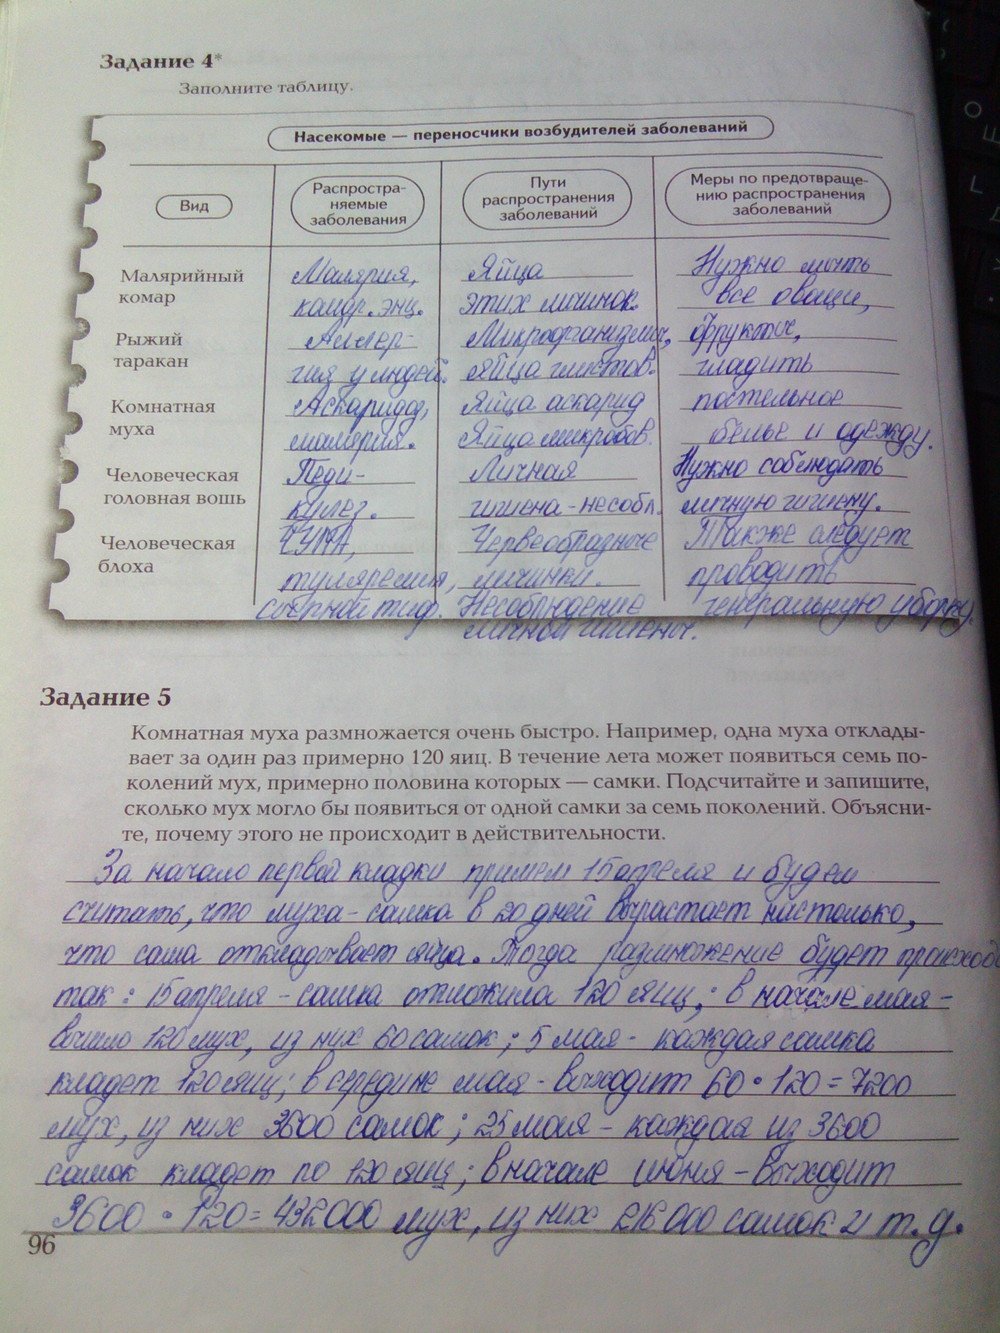 Задание 4*
Заполните таблицу.
Насекомые — переносчики возбудителей заболеваний
Вид
Распростра-
няемые
заболевания
Пути
распространения
заболеваний
Меры по предотвраще-
нию распространения
заболеваний
Малярийный
комар
Малярия,
комар. энц.
Яйца
этих личинок.
Нужно мыть
все овощи,
Рыжий
таракан
Аллер-
гия у людей.
Микроорганизмы,
яйца глистов.
фрукты,
гладить
Комнатная
муха
Аскаридоз,
малярия.
Яйца аскарид
Яйца микробов.
постельное
белье и одежду.
Человеческая
головная вошь
Педи-
кулез.
Личная
гигиена-несобл.
Нужно соблюдать
личную гигиену.
Человеческая
блоха
ЧУМА,
туляремия,
сыпной тиф.
Червеобразные
личинки.
Несоблюдение
личной гигиены.
Также следует
проводить
генеральную уборку.
Задание 5
Комнатная муха размножается очень быстро. Например, одна муха отклады-
вает за один раз примерно 120 яиц. В течение лета может появиться семь по-
колений мух, примерно половина которых — самки. Подсчитайте и запишите,
сколько мух могло бы появиться от одной самки за семь поколений. Объясни-
те, почему этого не происходит в действительности.
За начало первой кладки примем 15 апреля и будем
считать, что муха-самка в 20 дней вырастает настолько,
что сама откладывает яйца. Тогда размножение будет происход
так: 15 апреля - самка отложила 120 яиц; в начале мая -
вышло 120 мух, из них 60 самок; 5 мая - каждая самка
кладет 120 яиц; в середине мая - выходит 60 · 120 = 7200
мух, из них 3600 самок; 25 мая - каждая из 3600
самок кладет по 120 яиц; в начале июня - выходит
3600 · 120 = 432000 мух, из них 216000 самок и т.д.
96